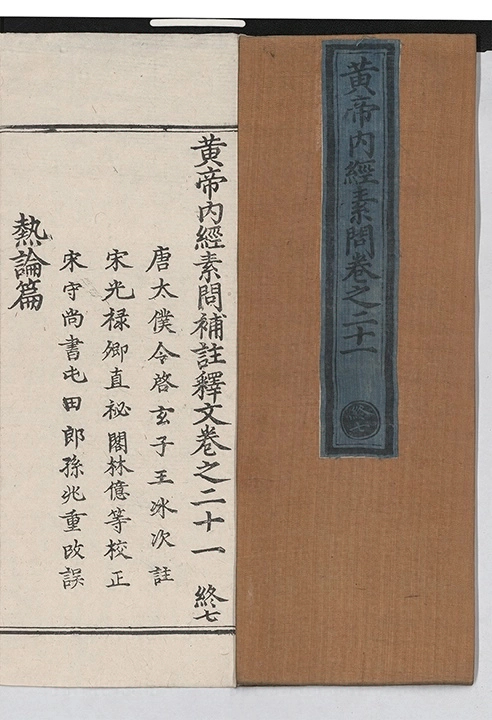 黄帝内經素問卷之二十一
終七
黄帝内經素問補註釋文卷之二十一 終七
唐太僕令啓玄子王冰次註
宋光禄卿直祕閣林億等校正
宋守尚書屯田郎孫兆重改誤
熱論篇